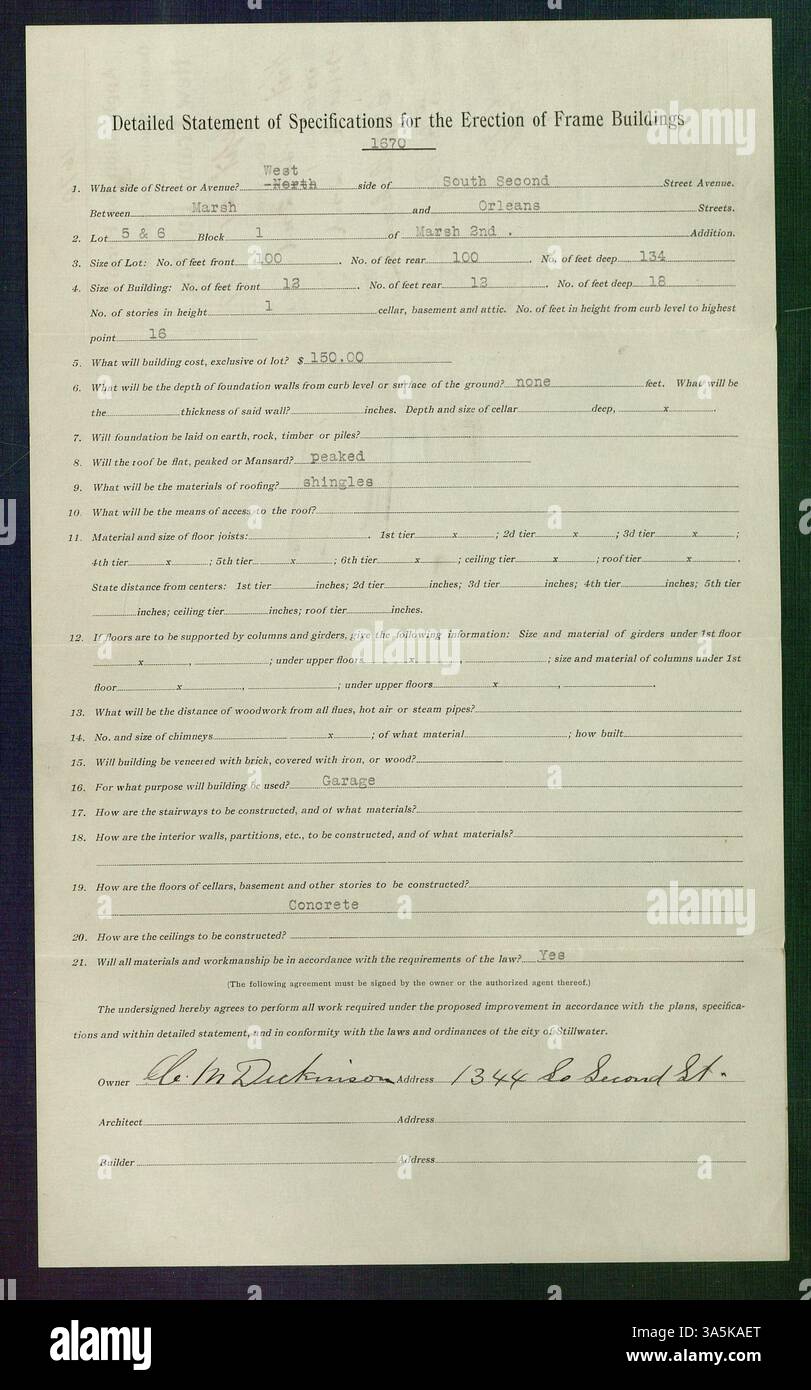 Detailed Statement of Specifications for the Erection of Frame Buildings
1670
West
1. What side of Street or Avenue? North side of South Second Street Avenue.
Between Marsh and Orleans Streets.
2. Lot 5 & 6 Block 1 of Marsh 2nd . Addition.
3. Size of Lot: No. of feet front 100 . No. of feet rear 100 . No. of feet deep 134
4. Size of Building: No. of feet front 12 . No. of feet rear 12 . No. of feet deep 18
No. of stories in height 1 cellar, basement and attic. No. of feet in height from curb level to highest
point 16
5. What will building cost, exclusive of lot? $ 150.00
6. What will be the depth of foundation walls from curb level or surface of the ground? none feet. What will be
the thickness of said wall? inches. Depth and size of cellar deep, x .
7. Will foundation be laid on earth, rock, timber or piles?
8. Will the roof be flat, peaked or Mansard? peaked
9. What will be the materials of roofing? shingles
10. What will be the means of access to the roof?
11. Material and size of floor joists: . 1st tier x ; 2d tier x ; 3d tier x ;
4th tier x ; 5th tier x ; 6th tier x ; ceiling tier x ; roof tier x .
State distance from centers: 1st tier inches; 2d tier inches; 3d tier inches; 4th tier inches; 5th tier
inches; ceiling tier inches; roof tier inches.
12. If floors are to be supported by columns and girders, give the following information: Size and material of girders under 1st floor
x , ; under upper floors x , ; size and material of columns under 1st
floor x , ; under upper floors x , .
13. What will be the distance of woodwork from all flues, hot air or steam pipes?
14. No. and size of chimneys x ; of what material ; how built
15. Will building be veneered with brick, covered with iron, or wood?
16. For what purpose will building be used? Garage
17. How are the stairways to be constructed, and of what materials?
18. How are the interior walls, partitions, etc., to be constructed, and of what materials?
19. How are the floors of cellars, basement and other stories to be constructed?
Concrete
20. How are the ceilings to be constructed?
21. Will all materials and workmanship be in accordance with the requirements of the law? Yes
(The following agreement must be signed by the owner or the authorized agent thereof.)
The undersigned hereby agrees to perform all work required under the proposed improvement in accordance with the plans, specifica-
tions and within detailed statement, and in conformity with the laws and ordinances of the city of Stillwater.
Owner C. M Dickinson Address 1344 So Second St.
Architect Address
Builder Address
alamy
Image ID: A5KAET
www.alamy.com